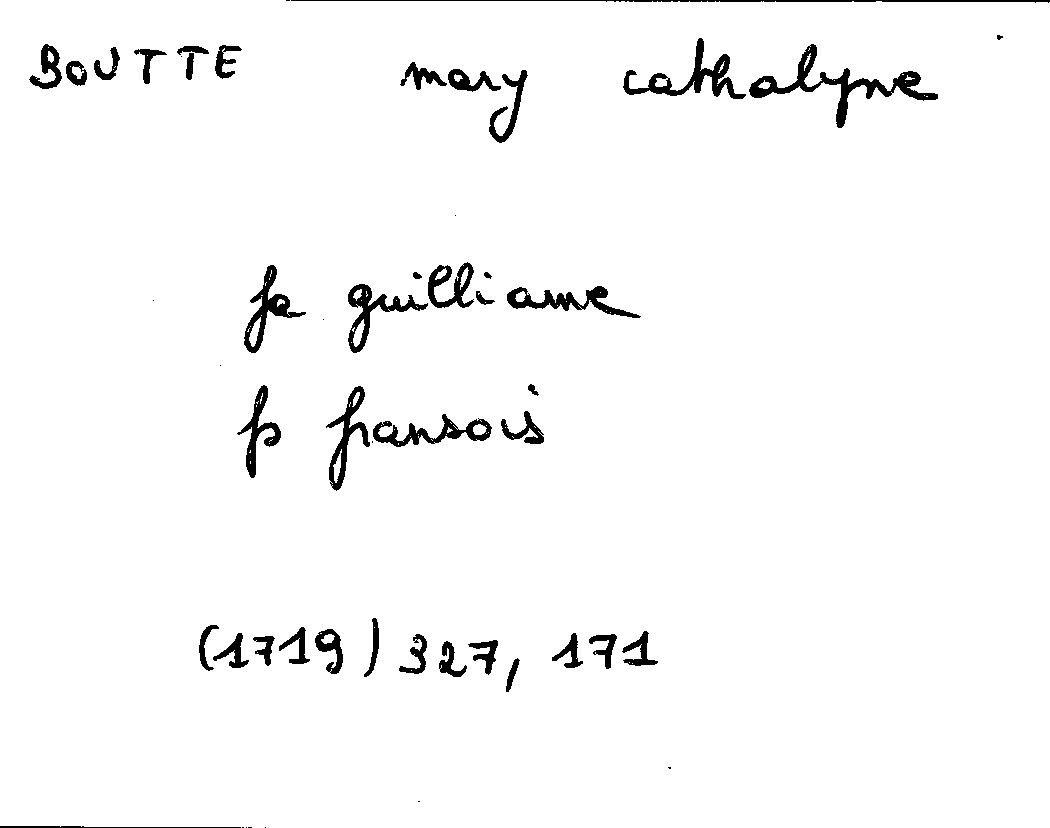 BOUTTE mary cathalyne
fa guilliame
p fransois
(1719) 327, 171